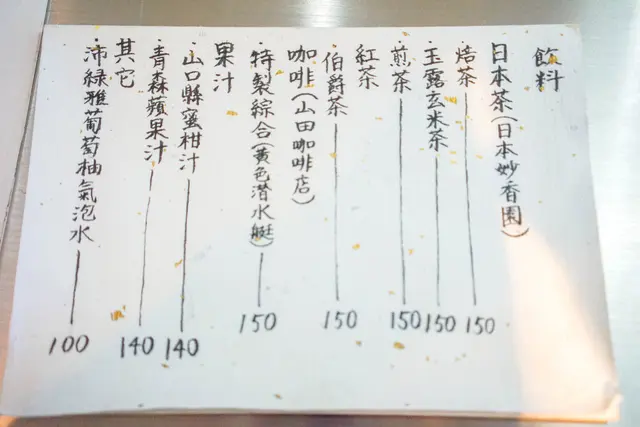 飲料
日本茶(日本妙香園)
·焙茶 150
·玉露玄米茶 150
·煎茶 150
紅茶
·伯爵茶 150
咖啡(山田咖啡店)
·特製綜合(黃色潛水艇) 150
果汁
·山口縣蜜柑汁 140
·青森蘋果汁 140
其它
·沛綠雅葡萄柚氣泡水 100